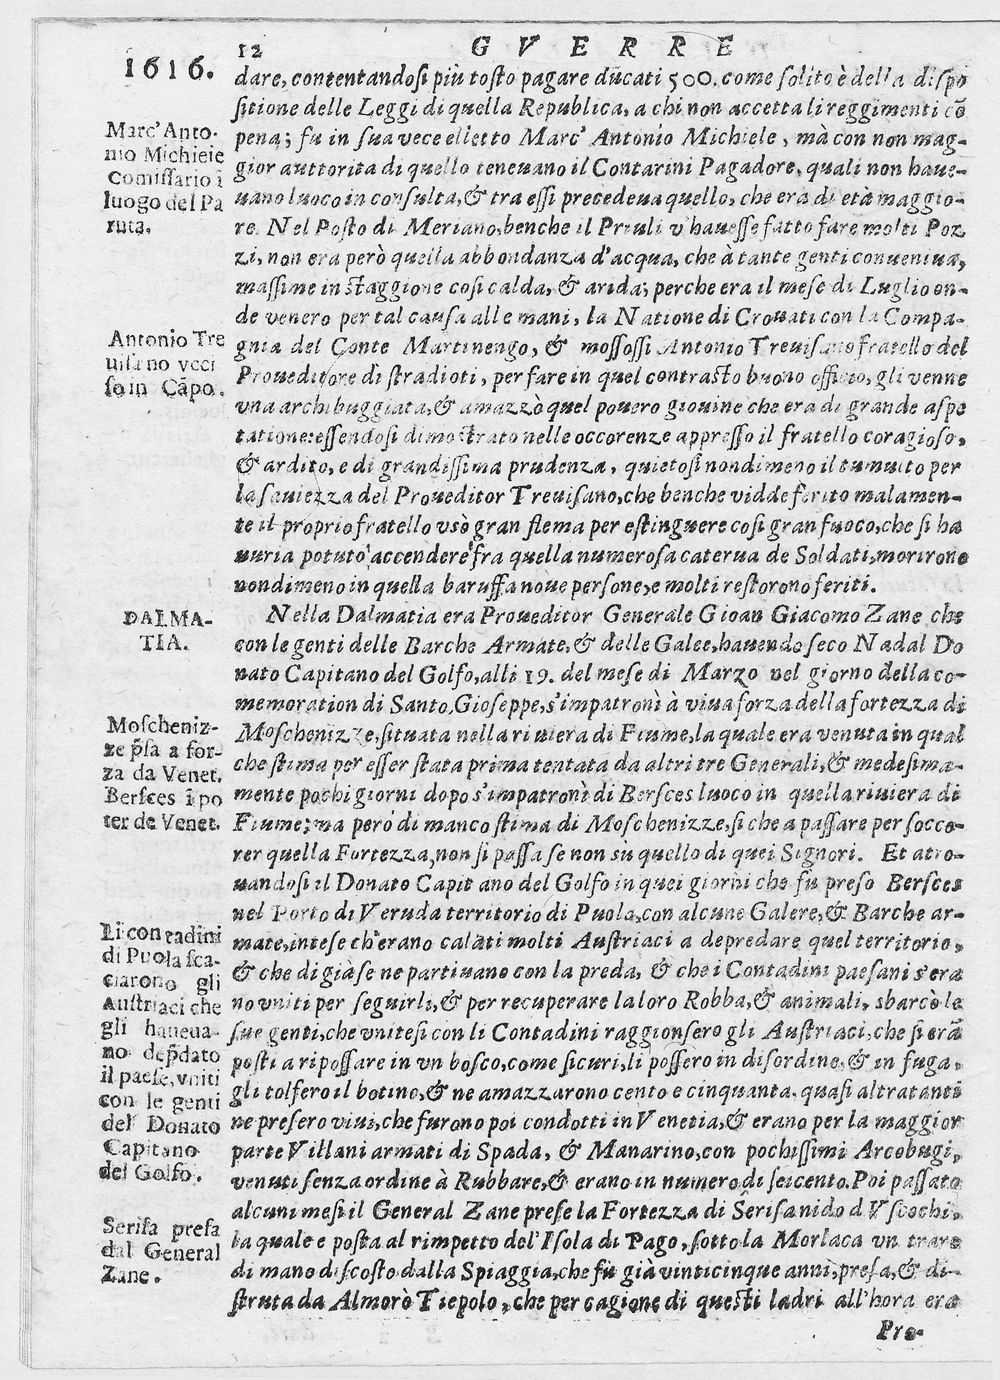 12 GVERRE
1616.
dare, contentandosi più tosto pagare ducati 500. come solito è della dispo
sitione delle Leggi di quella Republica, a chi non accetta li reggimenti cõ
pena; fu in sua vece elletto Marc' Antonio Michiele, mà con non mag-
gior auttorita di quello teneuano il Contarini Pagadore, quali non haue-
uano luoco in consulta, & tra essi precedeua quello, che era di età maggio-
re. Nel Posto di Meriano, benche il Priuli v'hauesse fatto fare molti Poz
zi, non era però quella abbondanza d'acqua, che à tante genti conueniua,
massime in staggione cosi calda, & arida; perche era il mese di Luglio on-
de venero per tal causa alle mani, la Natione di Crouati con la Compa-
gnia del Conte Martinengo, & mossossi Antonio Treuisano fratello del
Proueditore di stradioti, per fare in quel contrasto buono officio, gli venne
vna archibuggiata, & amazzò quel pouero giouine che era di grande aspe
tatione: essendosi dimostrato nelle occorenze appresso il fratello coragioso,
& ardito, e di grandissima prudenza, quietosi nondimeno il tumulto per
la sauiezza del Proueditor Treuisano, che benche vidde ferito malamen-
te il proprio fratello vsò gran flema per estinguere cosi gran fuoco, che si ha
uuria potuto accendere fra quella numerosa caterua de Soldati, morirono
nondimeno in quella baruffa noue persone, e molti restorono feriti.
Nella Dalmatia era Proueditor Generale Gioan Giacomo Zane che
con le genti delle Barche Armate, & delle Galee, hauendo seco Nadal Do
nato Capitano del Golfo, alli 19. del mese di Marzo nel giorno della co-
memoration di Santo Gioseppe, s'impatronì à viua forza della fortezza di
Moschenizze, situata nella riuiera di Fiume, la quale era venuta in qual
che stima per esser stata prima tentata da altri tre Generali, & medesima-
mente pochi giorni dopo s'impatronì di Bersces luoco in quella riuiera di
Fiume; ma però di manco stima di Moschenizze, si che a passare per socco-
rer quella Fortezza, non si passa se non sù quello di quei Signori. Et atro-
uandosi il Donato Capitano del Golfo in quei giorni che fu preso Bersces
nel Porto di Veruda territorio di Puola, con alcune Galere, & Barche ar-
mate, intese ch'erano calati molti Austriaci a depredare quel territorio,
& che di già se ne partiuano con la preda, & che i Contadini paesani s'era
no vniti per seguirli, & per recuperare la loro Robba, & animali, sbarcò le
sue genti, che vnitesi con li Contadini raggionsero gli Austriaci, che si erã
posti a ripossare in vn bosco, come sicuri, li possero in disordine, & in fuga,
gli tolsero il botino, & ne amazzarono cento e cinquanta, quasi altratanti
ne presero viui, che furono poi condotti in Venetia, & erano per la maggior
parte Villani armati di Spada, & Manarino, con pochissimi Arcobugi,
venuti senza ordine à Rubbare, & erano in numero di seicento. Poi passato
alcuni mesi il General Zane prese la Fortezza di Serisa nido d Vscochi,
la quale e posta al rimpetto del' Isola di Pago, sotto la Morlaca vn traro
di mano discosto dalla Spiaggia, che fù già vinticinque anni, presa, & di-
struta da Almorò Tiepolo, che per cagione di questi ladri all'hora era
Pro-
Marc' Anto-
nio Michiele
Comissario ĩ
luogo del Pa
ruta.
Antonio Tre
uisano vcci
so in Cãpo.
DALMA-
TIA.
Mosch​eniz-
ze p̃sa a for-
za da Venet.
Bersces ĩ po
ter de Venet.
Li contadini
di Puola sca-
ciarono gli
Austriaci che
gli haueua-
no dep̃dato
il paese, vniti
con le genti
del Donato
Capitano
del Golfo.
Serisa presa
dal General
Zane.